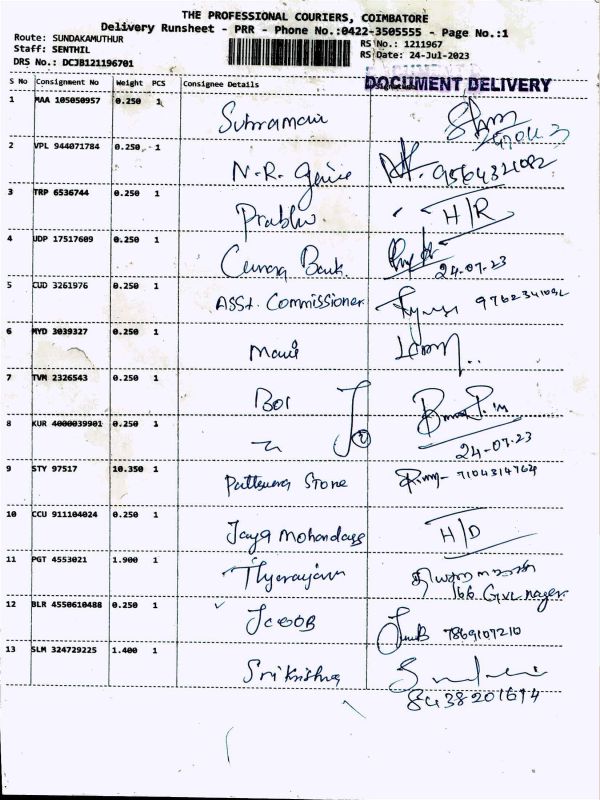 THE PROFESSIONAL COURIERS, COIMBATORE
Delivery Runsheet - PRR - Phone No.:0422-3505555 - Page No.:1
Route: SUNDAKAMUTHUR
RS No.: 1211967
Staff: SENTHIL
RS Date: 24-Jul-2023
DRS No.: DCJB121196701
DOCUMENT DELIVERY
S No Consignment No Weight PCS Consignee Details
1 MAA 105050957 0.250 1
2 VPL 944071784 0.250 1 N.R.
3 TRP 6536744 0.250 1 Prabhu. H/R
4 UDP 17517609 0.250 1 Bank. 24-07-23
5 CUD 3261976 0.250 1 ASSt. Commissioner
6 MYD 3039327 0.250 1 Mani
7 TVM 2326543 0.250 1 BOI
8 KUR 4000039901 0.250 1 24-07-23
9 STY 97517 10.350 1 Stone
10 CCU 911104024 0.250 1 Jaya Mohandass H/D
11 PGT 4553021 1.900 1
166 GVL nager
12 BLR 4550610488 0.250 1 7869107210
13 SLM 324729225 1.400 1 Srikrishna
8438201614